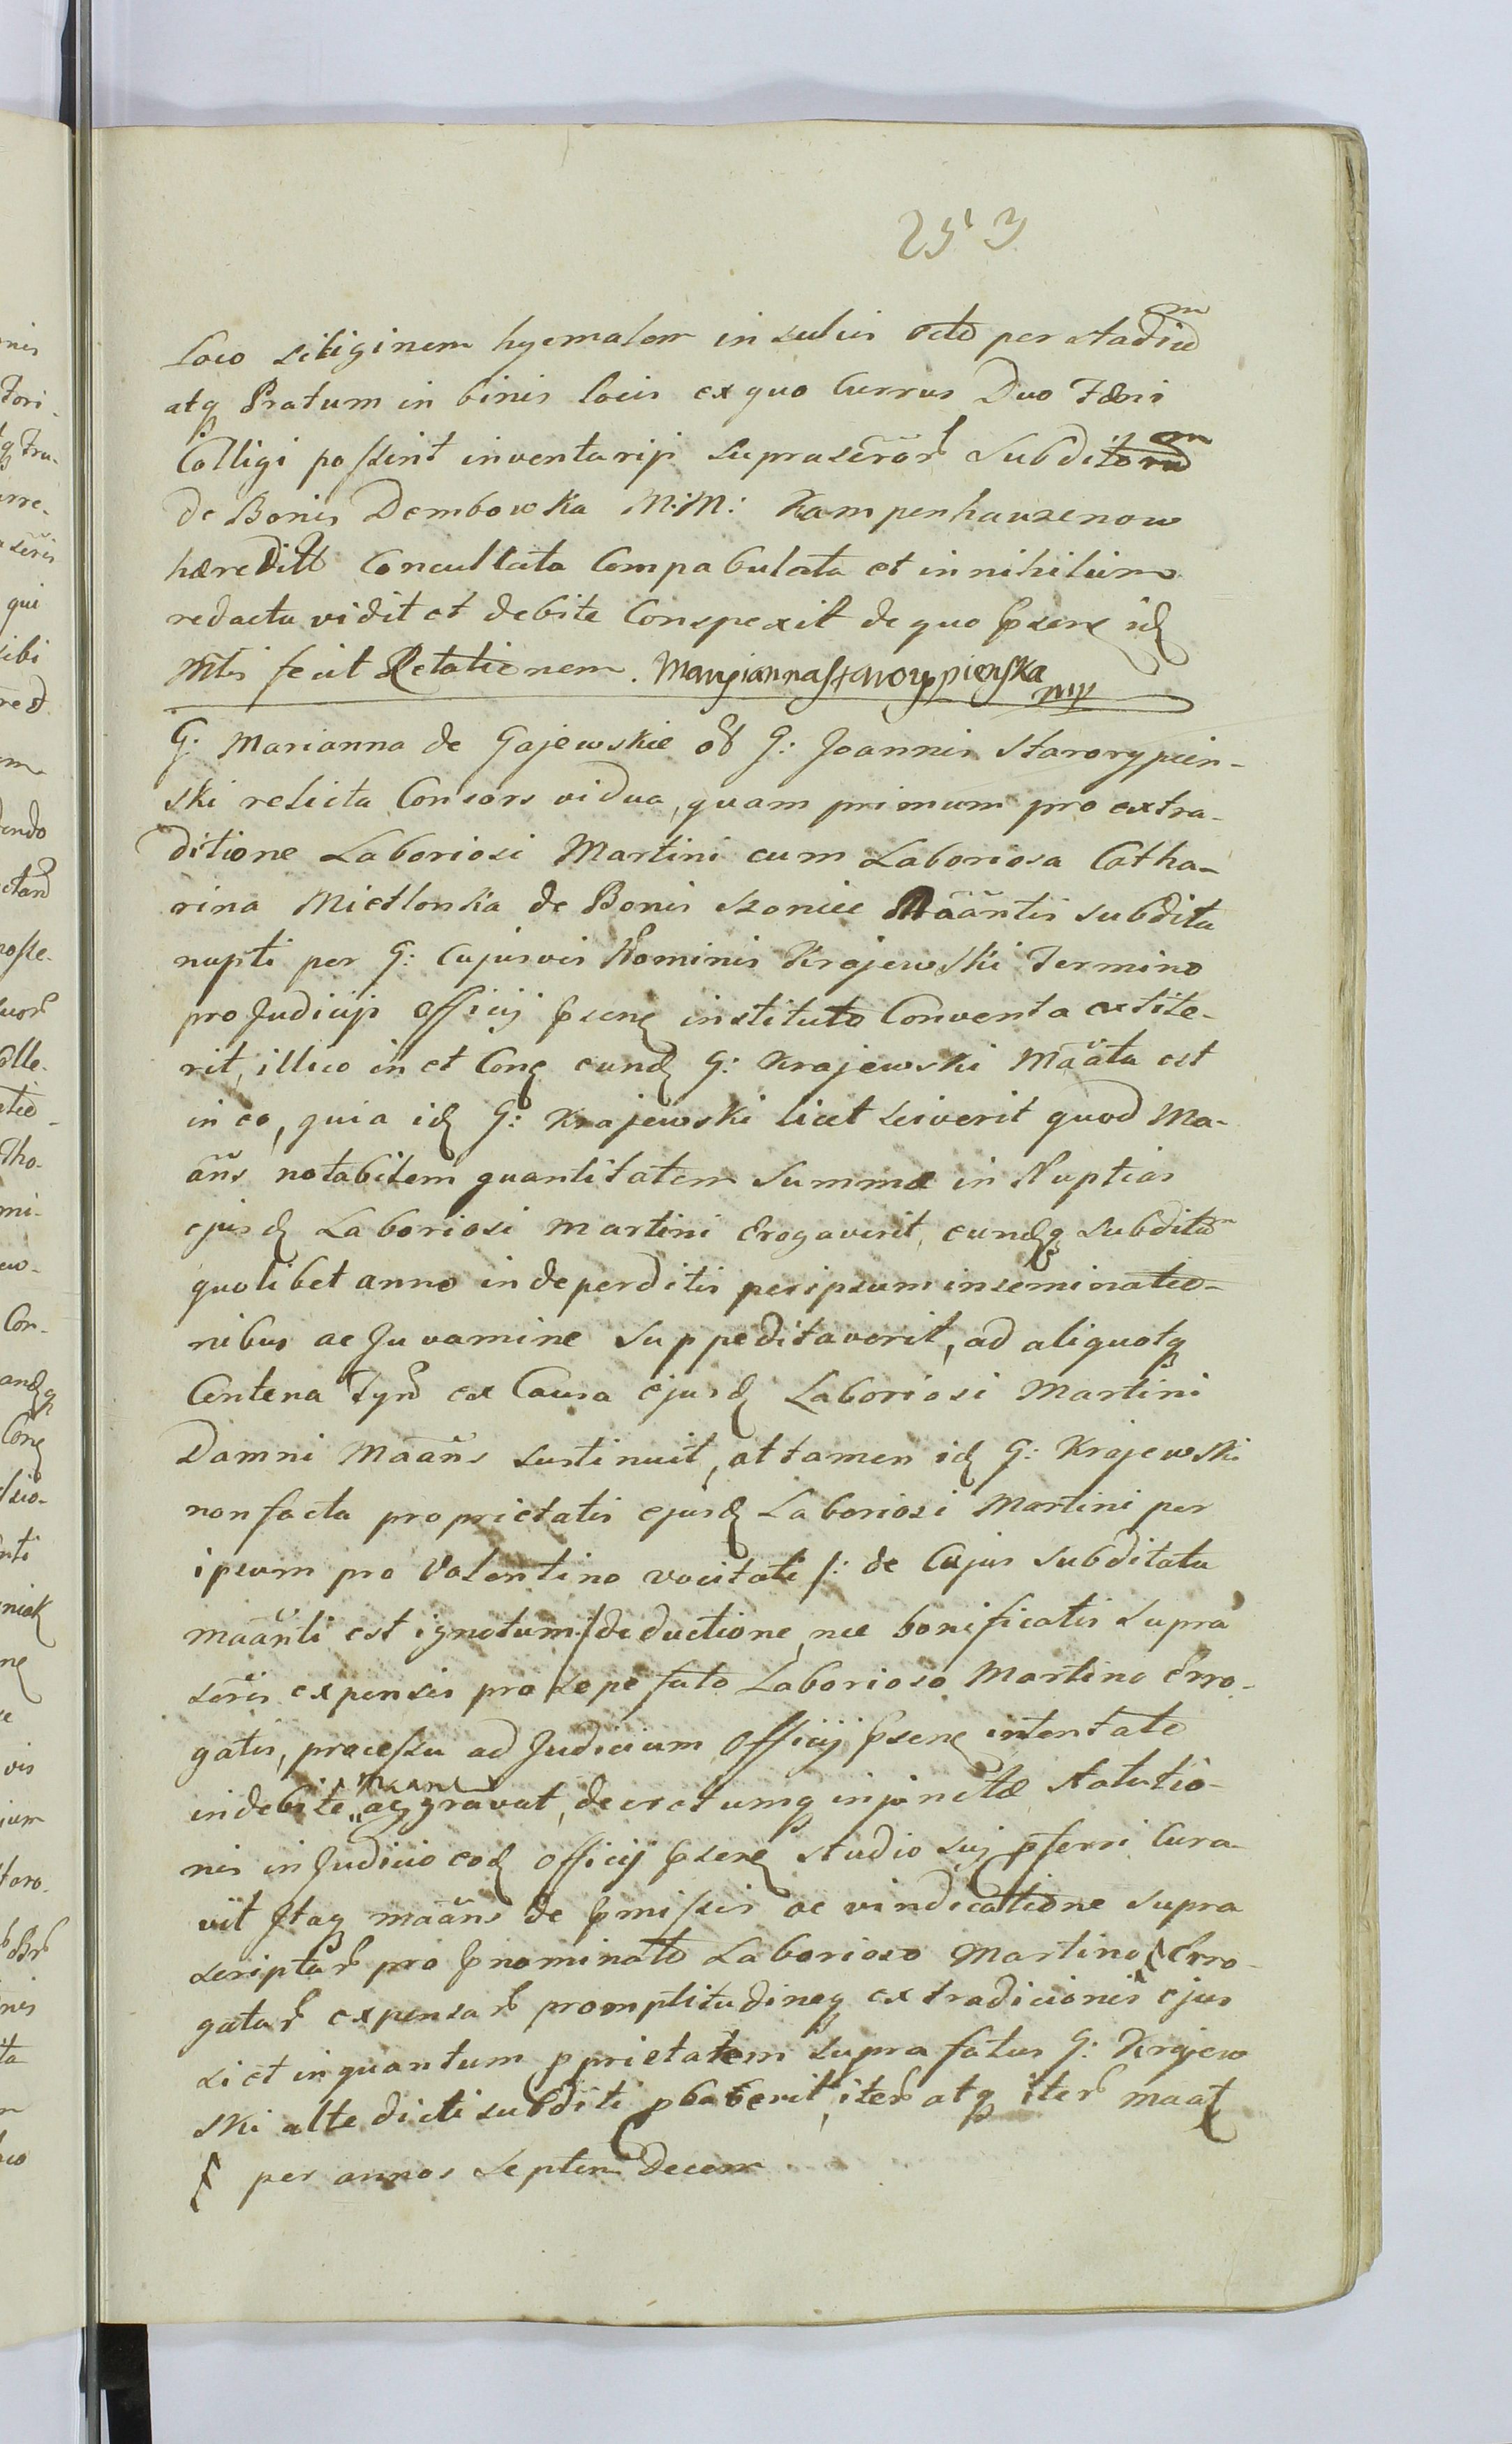 253
loco siliginem hyemalem in sulcis octo per stadiū
atq Pratum in binis locis ex quo Currus Duo Fœni
Colligi possint inventarij suprascr̄or̄ Subditorū
de Bonis Dembowka M:M: Kampenhauzenow
hæredit̄ Concultata Compabulata et in nihilum
redacta vidit et debite Conspexit de quo p̄sens id
Mt̄is fecit Relationem. Maryianna Staworypienska
mp
G: Marianna de Gajewskie ol̄ G: Joannis Starorypien-
ski relicta Consors vidua, quam primum pro extra-
ditione Laboriosi Martini cum Laboriosa Catha-
rina Mietlonka de Bonis Szonice Māāntis subdita
nupti per G: Cujusvis Nominis Krajewski Termino
pro Judicijs Officij p̄sens instituto Conventa extite-
rit, illico in et Con̄ eund G: Krajewski Māāta est
in eo, quia id G: Krajewski licet sciverit quod Ma-
āns notabilem quantitatem Summæ in Nuptias
ejusd Laboriosi Martini Erogaverit, eundq subditū
quolibet anno in deperditis per ipsum inseminatio-
nibus ac Juvamine suppeditaverit, ad aliquotq
Centena Tyn̄ ex Causa ejusd Laboriosi Martini
Damni Māāns sustinuit, attamen id G: Krajewski
non facta proprietatis ejusd Laboriosi Martini per
ipsum pro Valentino vocitati /: de Cujus subditatu
māānti est ignotum :/ deductione, nec bonificatis supra
scr̄is expensis pro sepefato Laborioso Martino Erro-
gatis, processu ad Judicium Officij p̄sens intentato
māān
indebite aggravat, decretumq injunctæ statutio-
nis in Judicio eod Officij p̄sens studio suj p̄ferri Cura-
vit Itaq māāns de p̄missis ac vindicatione supra
scriptar̄ pro p̄nominato Laborioso Martino Erro-
gatar̄ expensar̄ promptitudineq extradicionis ejus
si et in quantum p̄prietatem supra fatus G: Krajew
ski alte dicti subditi p̄baverit, iter̄ atq iter̄ maat
per annos Septem Decem